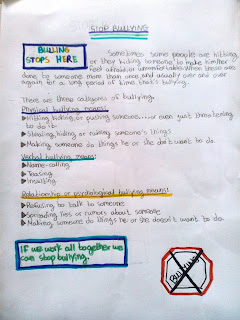 STOP BULLYING
BULLING
STOPS HERE
Sometimes some people are hitting
or they hiding someone to make him/her
feel afraid, or uncomfortable. When these are
done to someone more than once, and usually over and over
again for a long period of time that's bullying.
There are three categories of bullying.
Physical bullying means:
Hitting, kicking, or pushing someone.....or even just threatening
to do it
Stealing, hiding or ruining someone's things
Making someone do things he or she don't want to do.
Verbal bullying means:
Name-calling
Teasing
Insulting
Relationship or psychological bullying means:
Refusing to talk to someone
Spreading lies or rumors about someone
Making someone do things he or she doesn't want to do.
If we work all together we
can stop bullying.
BULLYING